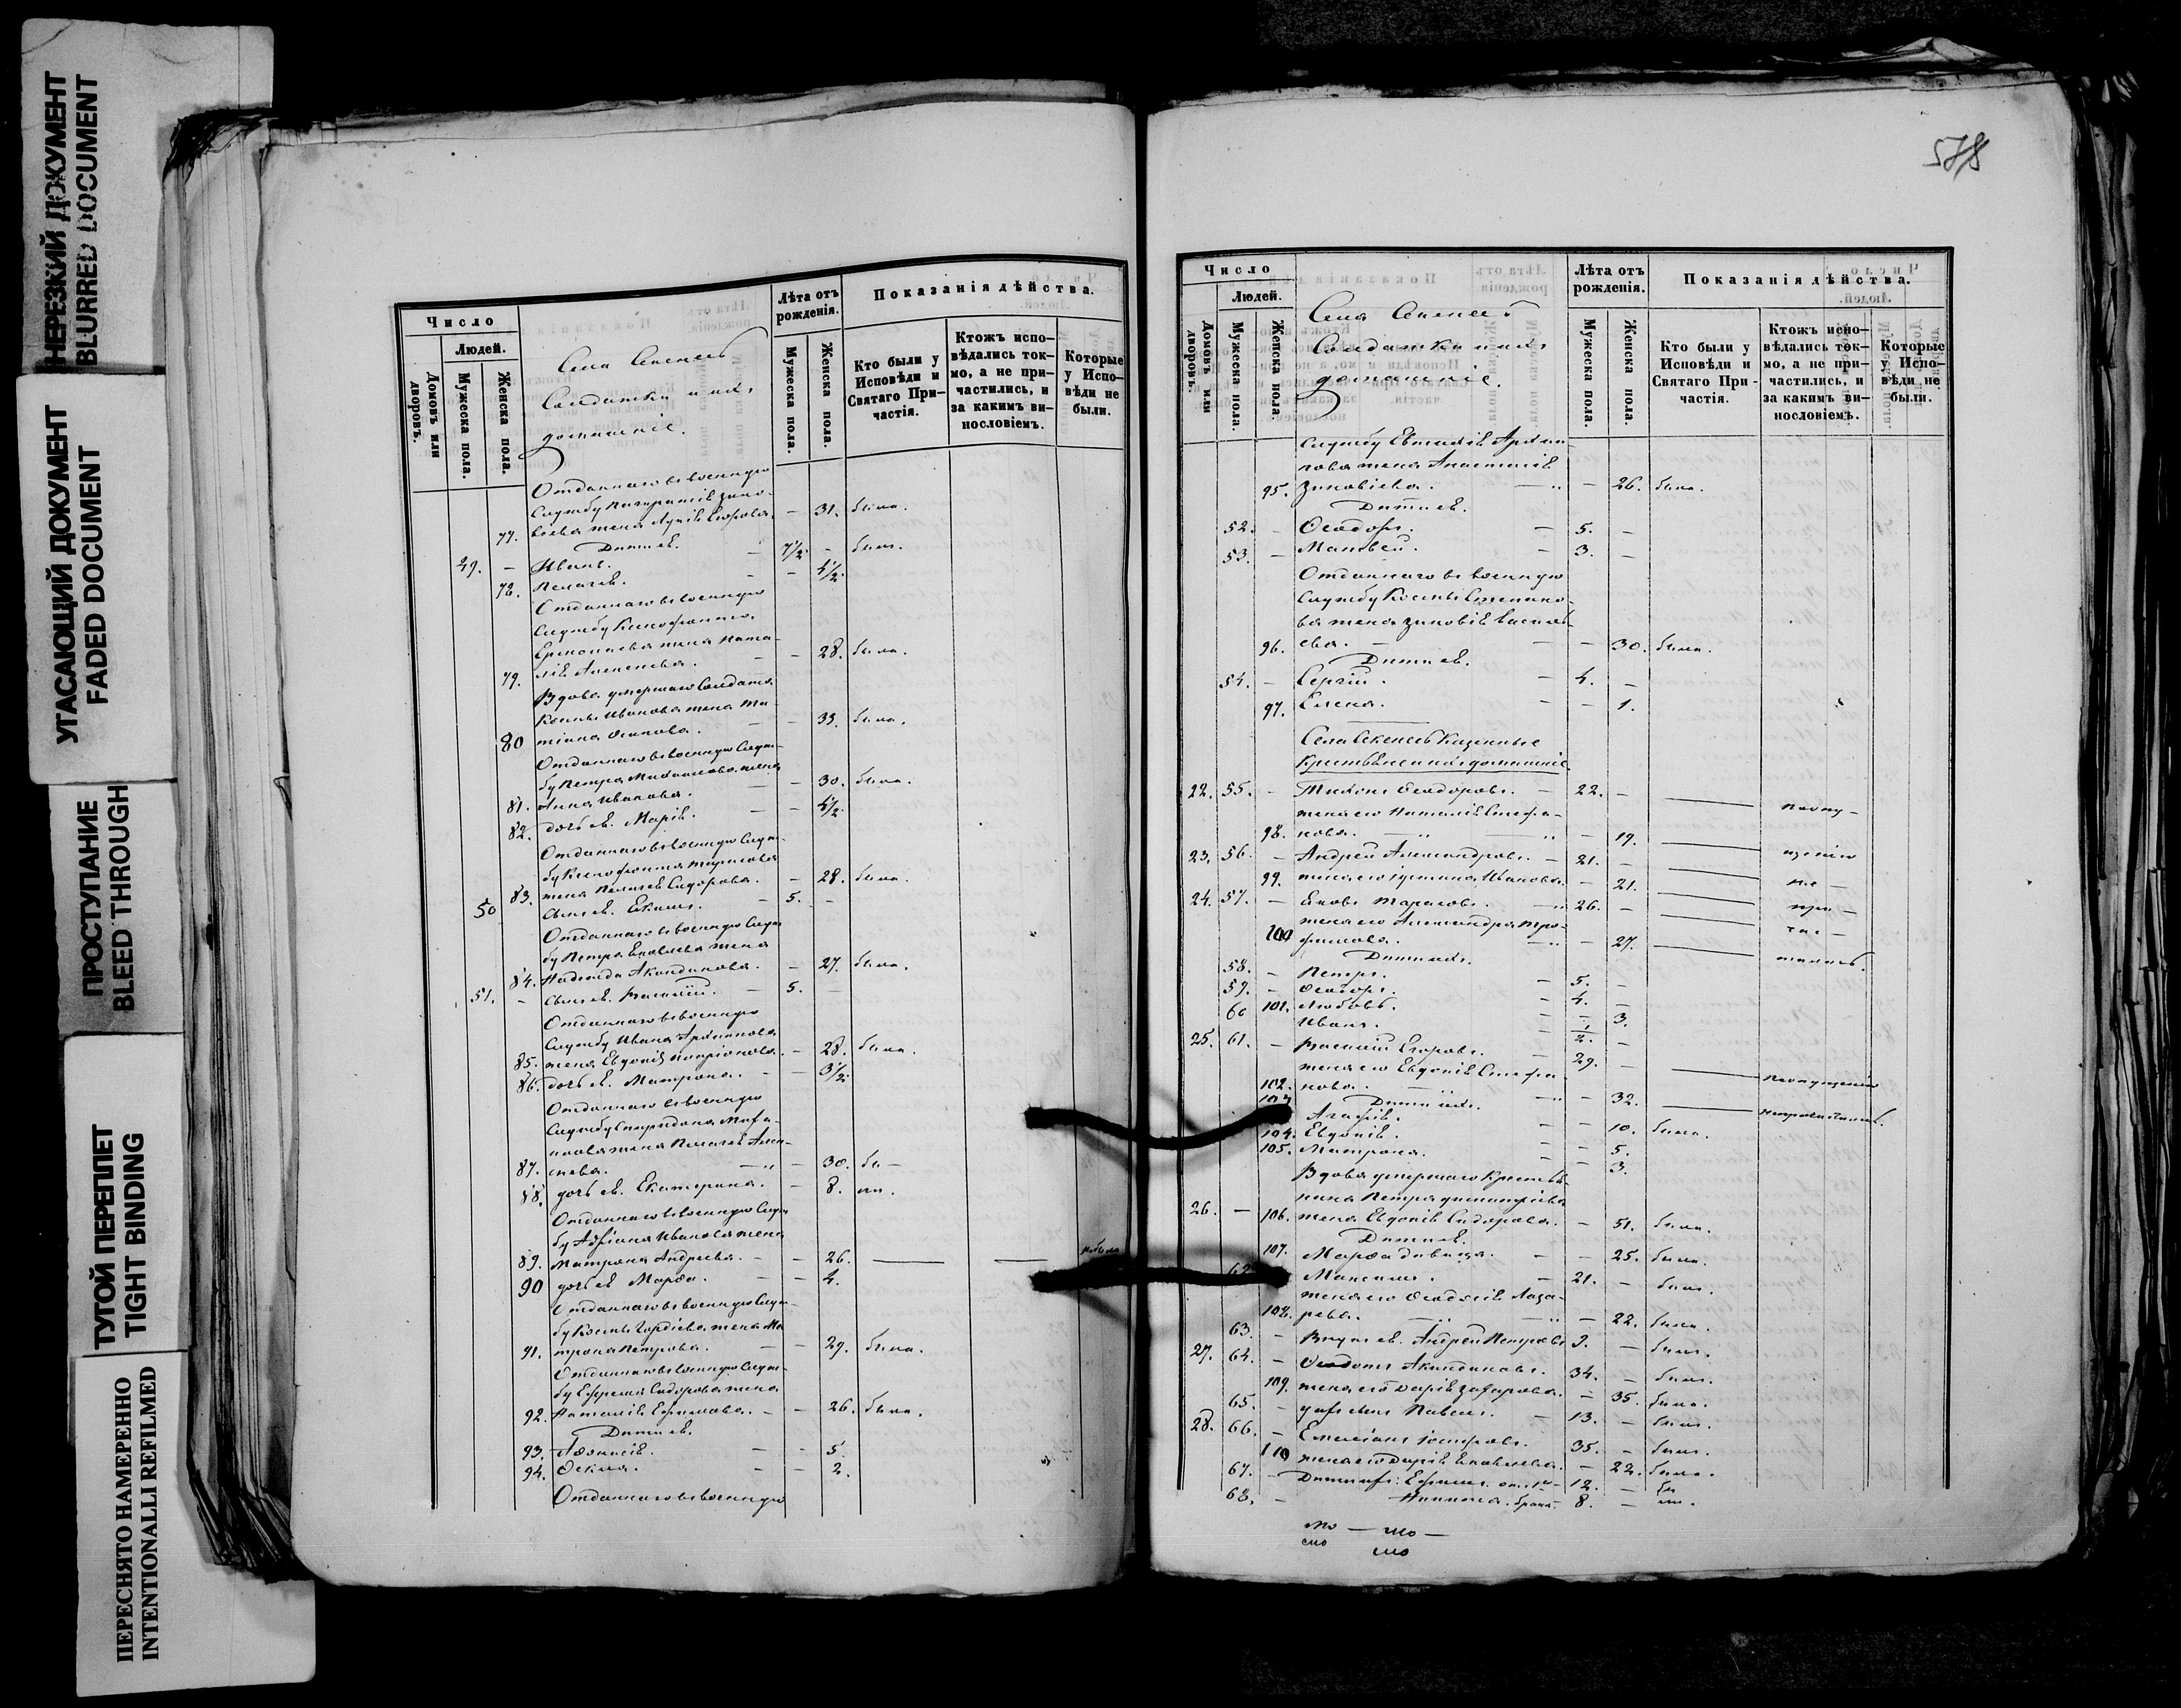 НЕРЕЗКИЙ ДОКУМЕНТ
BLURRED DOCUMENT
УГАСАЮЩИЙ ДОКУМЕНТ
FADED DOCUMENT
ПРОСТУПАНИЕ
BLEED THROUGH
ТУГОЙ ПЕРЕПЛЕТ
TIGHT BINDING
ПЕРЕСНЯТО НАМЕРЕННО
INTENTIONALLI REFILMED
Число
Людей.
Домовъ или дворовъ.
Мужеска пола.
Женска пола.
Села
Солдатки и ихъ
домашніе.
Лѣта отъ рожденія.
Мужеска пола.
Женска пола.
Показанія дѣйства.
Кто были у Исповѣди и Святаго Причастія.
Ктожъ исповѣдались токмо, а не причастились, и за какимъ винословіемъ.
Которые у Исповѣди не были.
Отданнаго въ военную
службу
77. жена — 31. была.
Дѣти ея.
49. — Иванъ. — 7½. — былъ.
78. Пелагея. — — 4½.
Отданнаго въ военную
службу Ксенофонта
Ермолаева жена Ната-
79. лія Алексеева. — — 28. была.
Вдова умершаго солдата
Козьмы Иванова жена Та-
80 тіана Осипова. — — 33. была.
Отданнаго въ военную служ-
бу Петра Михайлова жена
81. Анна Иванова. — — 30. была.
82. дочь ея Марія. — — 4½.
Отданнаго въ военную служ-
бу Ксенофонта Тарасова
83. жена Пелагея Сидорова. — 28. была.
50 сынъ ея. Екимъ. — 5. —
Отданнаго въ военную служ-
бу Петра Яковлева жена
84. Надежда Акиндинова. — 27. была.
51. — сынъ ея. Василій. — 5. —
Отданнаго въ военную
службу Ивана Архипова
85. жена Евдокія Иларіонова. — 28. была.
86. дочь ея. Матрона. — — 3½.
Отданнаго въ военную
службу Спиридона
жена Пелагея Алек-
87. сеева. — — 30. бы-
88. дочь ея. Екатерина. — 8. ли.
Отданнаго въ военную служ-
бу Адріана Иванова жена
89. Матрона Андреева. — — 26. — — не была
90 дочь ея Марѳа. — — 4.
Отданнаго въ военную служ-
бу Козьмы Гордіева жена Ма-
91. трона Петрова. — — 29. была.
Отданнаго въ военную служ-
бу Ефрема Сидорова жена
92. Наталія Ефимова. — — 26. была.
Дѣти ея.
93. Аѳонасія. — — 5.
94. Ѳекла. — — 2.
Отданнаго въ военную
578
Число
Людей.
Домовъ или дворовъ.
Мужеска пола.
Женска пола.
Села
Солдатки и ихъ
домашніе.
Лѣта отъ рожденія.
Мужеска пола.
Женска пола.
Показанія дѣйства.
Кто были у Исповѣди и Святаго Причастія.
Ктожъ исповѣдались токмо, а не причастились, и за какимъ винословіемъ.
Которые у Исповѣди не были.
службу Евтихія Архи-
пова жена Анастасія
95. Зиновіева. — — 26. была.
Дѣти ея.
52. — Ѳеодоръ. — 5. —
53. — Матвей. — 3. —
Отданнаго въ военную
службу Козьмы Степано-
ва жена Зиновія Василь-
96. ева. — — 30. была.
Дѣти ея.
54. — Сергій. — 4. —
97. Елена. — — 1.
Села Казенные
Крестьяне и ихъ домашніе.
22. 55. — Тихонъ Ѳеодоровъ. — 22. — — По опу-
жена его Наталія Стефа-
98. нова. — — 19. —
23. 56. — Андрей Александровъ. — 21. — — щенію
99. жена его Устина Иванова. — 21. — не —
24. 57. — Яковъ Тарасовъ. — 26. — — при —
жена его Александра Тро- час —
100 фимова. — — 27. — тились.
Дѣти ихъ.
58. — Петръ. — 5. —
59. — Ѳеодоръ. — 4. —
101. Любовь. — — 3.
60 Иванъ. — ½. —
25. 61. — Василій Егоровъ. — 29. — — По опущенію
жена его Евдокія Стефа-
102. нова. — — 32. — не причастились.
Дѣти ихъ.
103 Агафія. — — 10. была.
104. Евдокія. — — 5.
105. Матрона. — — 3.
Вдова умершаго крестья-
нина Петра Димитріева
26. — 106. жена Евдокія Сидорова. — 51. была.
Дѣти ея.
107. Марѳа девица. — — 25. была.
62 Максимъ. — 21. — былъ.
жена его Ѳеодосія Лаза-
108. рева. — — 22. была.
63. — Внукъ ея. Андрей Петровъ 9. — былъ.
27. 64. — Ѳедотъ Акиндиновъ. 34. — былъ.
109. жена его Дарія Захарова. — 35. была.
65. — Павелъ. — 13. — былъ.
28. 66. — Емеліанъ — 35. — былъ.
110 жена его Дарія Яковлева. — 22. была.
67. — Дѣти Ефимъ. 12. — бы
68. — Никита. брака. 8. — ли.